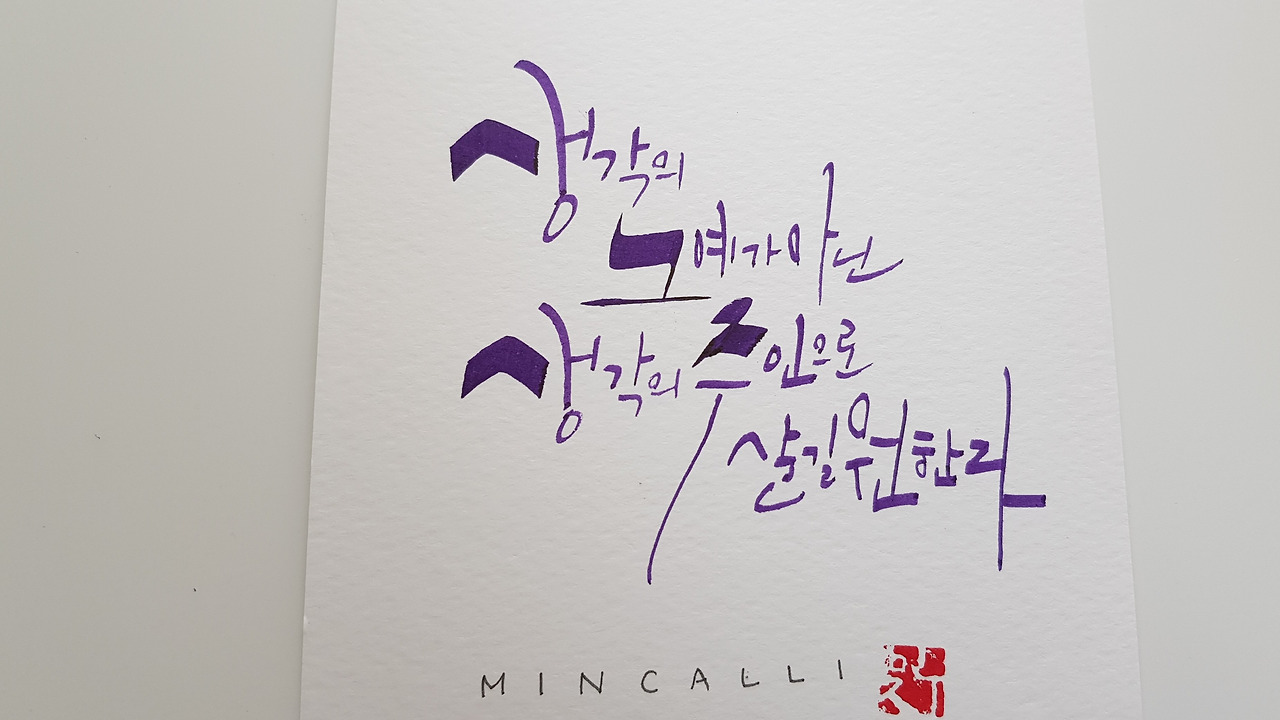 생각의
노예가 아닌
생각의 주인으로
살길 원한다
MINCALLI